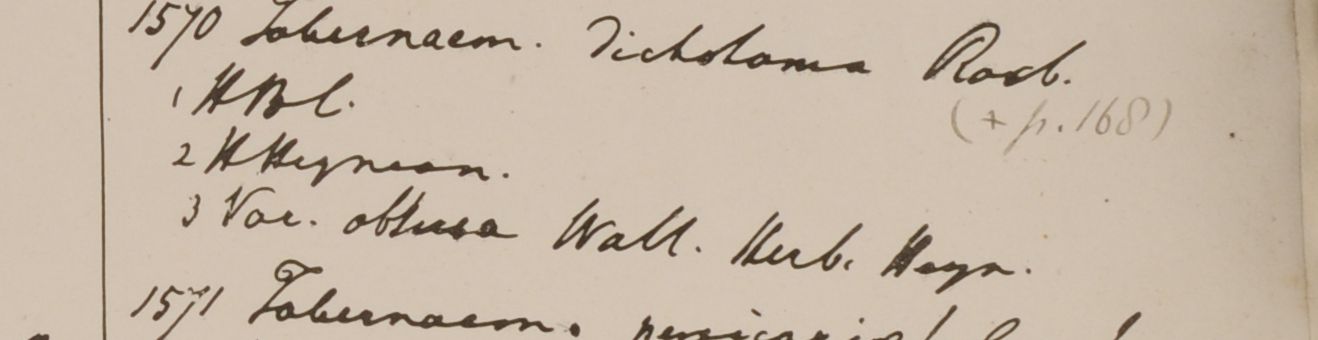 1570 Tabernaem. dichotoma Roxb.
(+ p. 168)
1 HBC.
2 HHeynean.
3 Var. obtusa Wall. Herb. Heyn.
1571 Tabernaem.